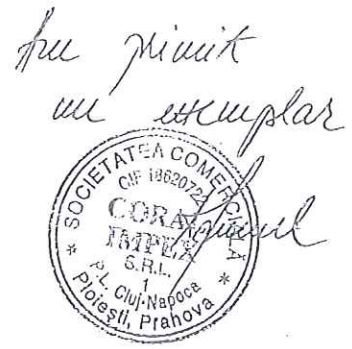 Am primit
un exemplar
SOCIETATEA COMERCIALĂ
CIF 18620722
CORAL
IMPEX
S.R.L.
1
P.L. Cluj-Napoca
Ploiești, Prahova